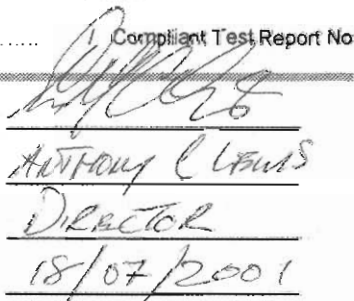 ...... Compliant Test Report No
ANTHONY C LEWIS
DIRECTOR
18/07/2001